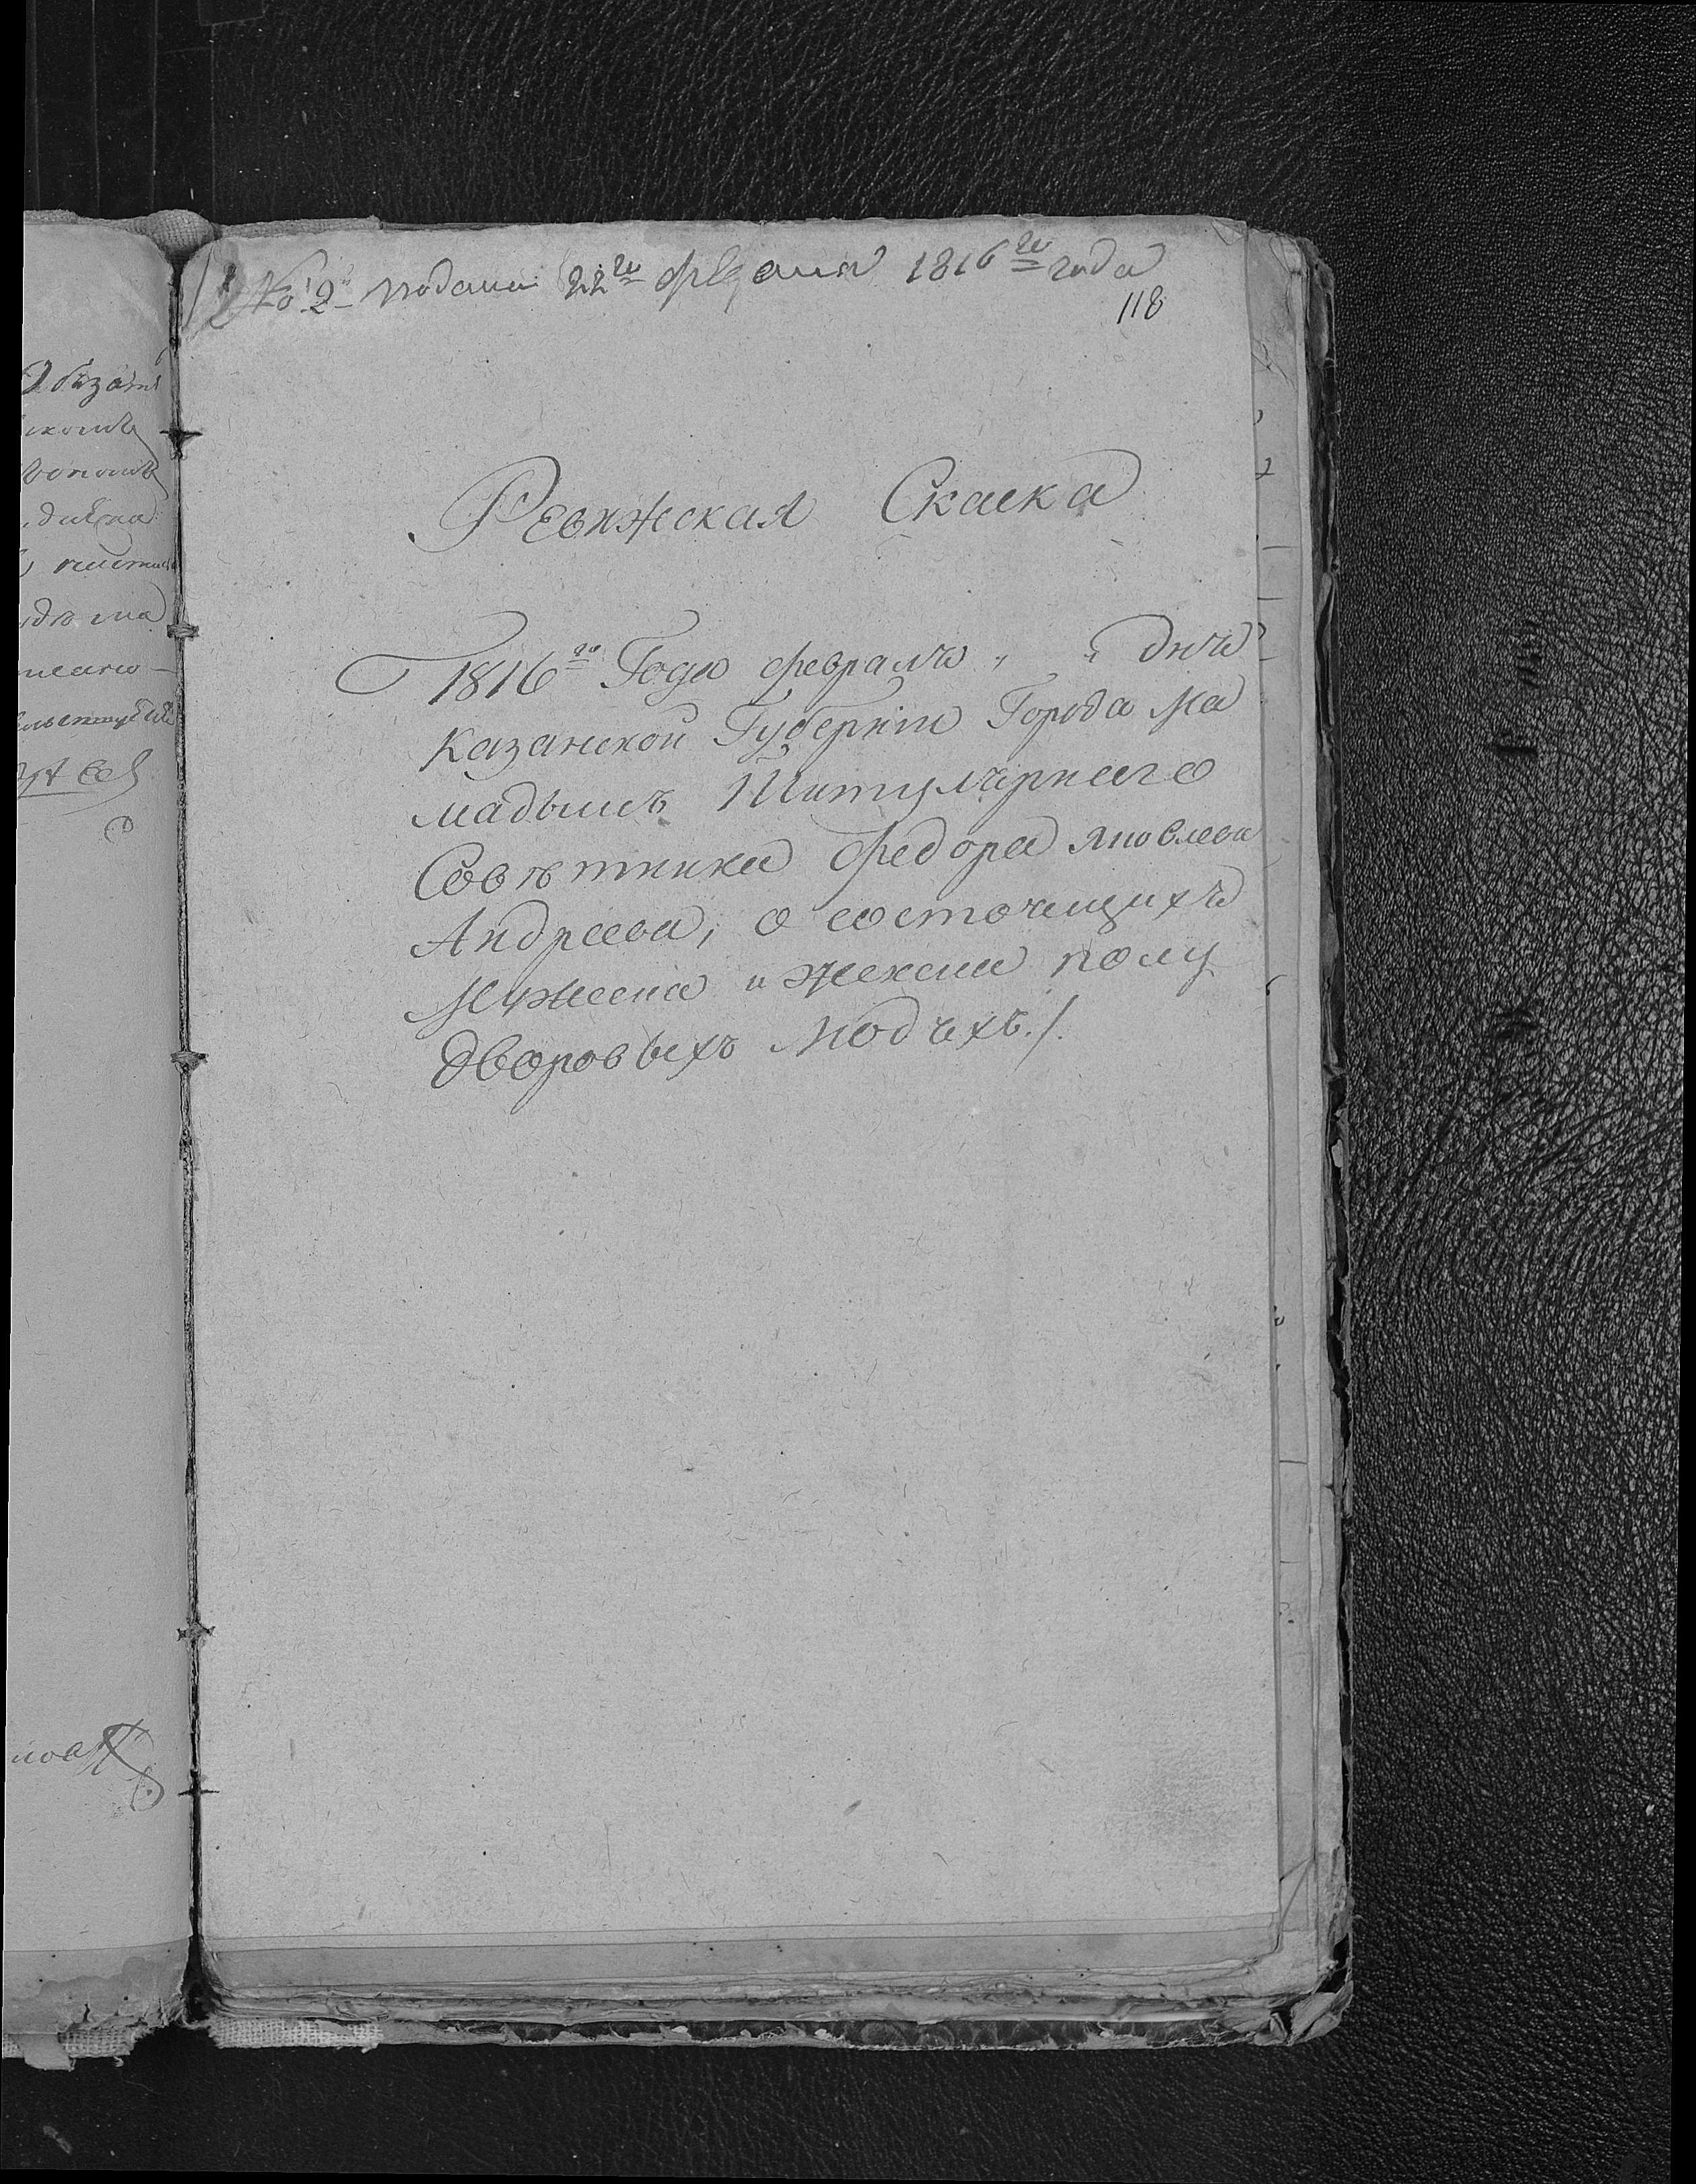 № 2 подана 22го февраля 1816го года
118
Ревижская Скаска
1816го Года февралъ " " дня
Казанской Губернiи Города Ма
мадышъ Титулярнаго
Советника Федора Яковлева
Андреева, о состоящихъ
Мужеска и женска полу
дворовыхъ людяхъ./.